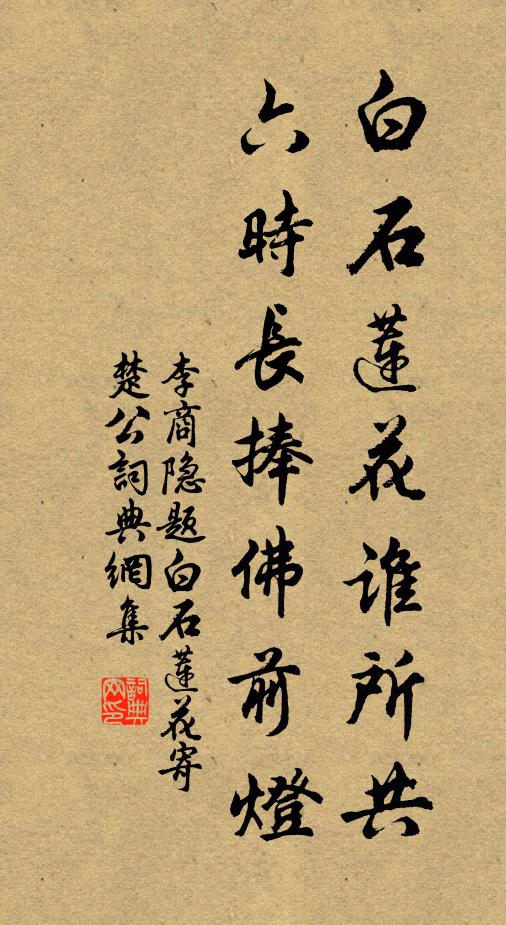 白石蓮花谁所共
六時長捧佛前燈
李商隐题白石蓮花寄
楚公詞典網集
詞典
网印